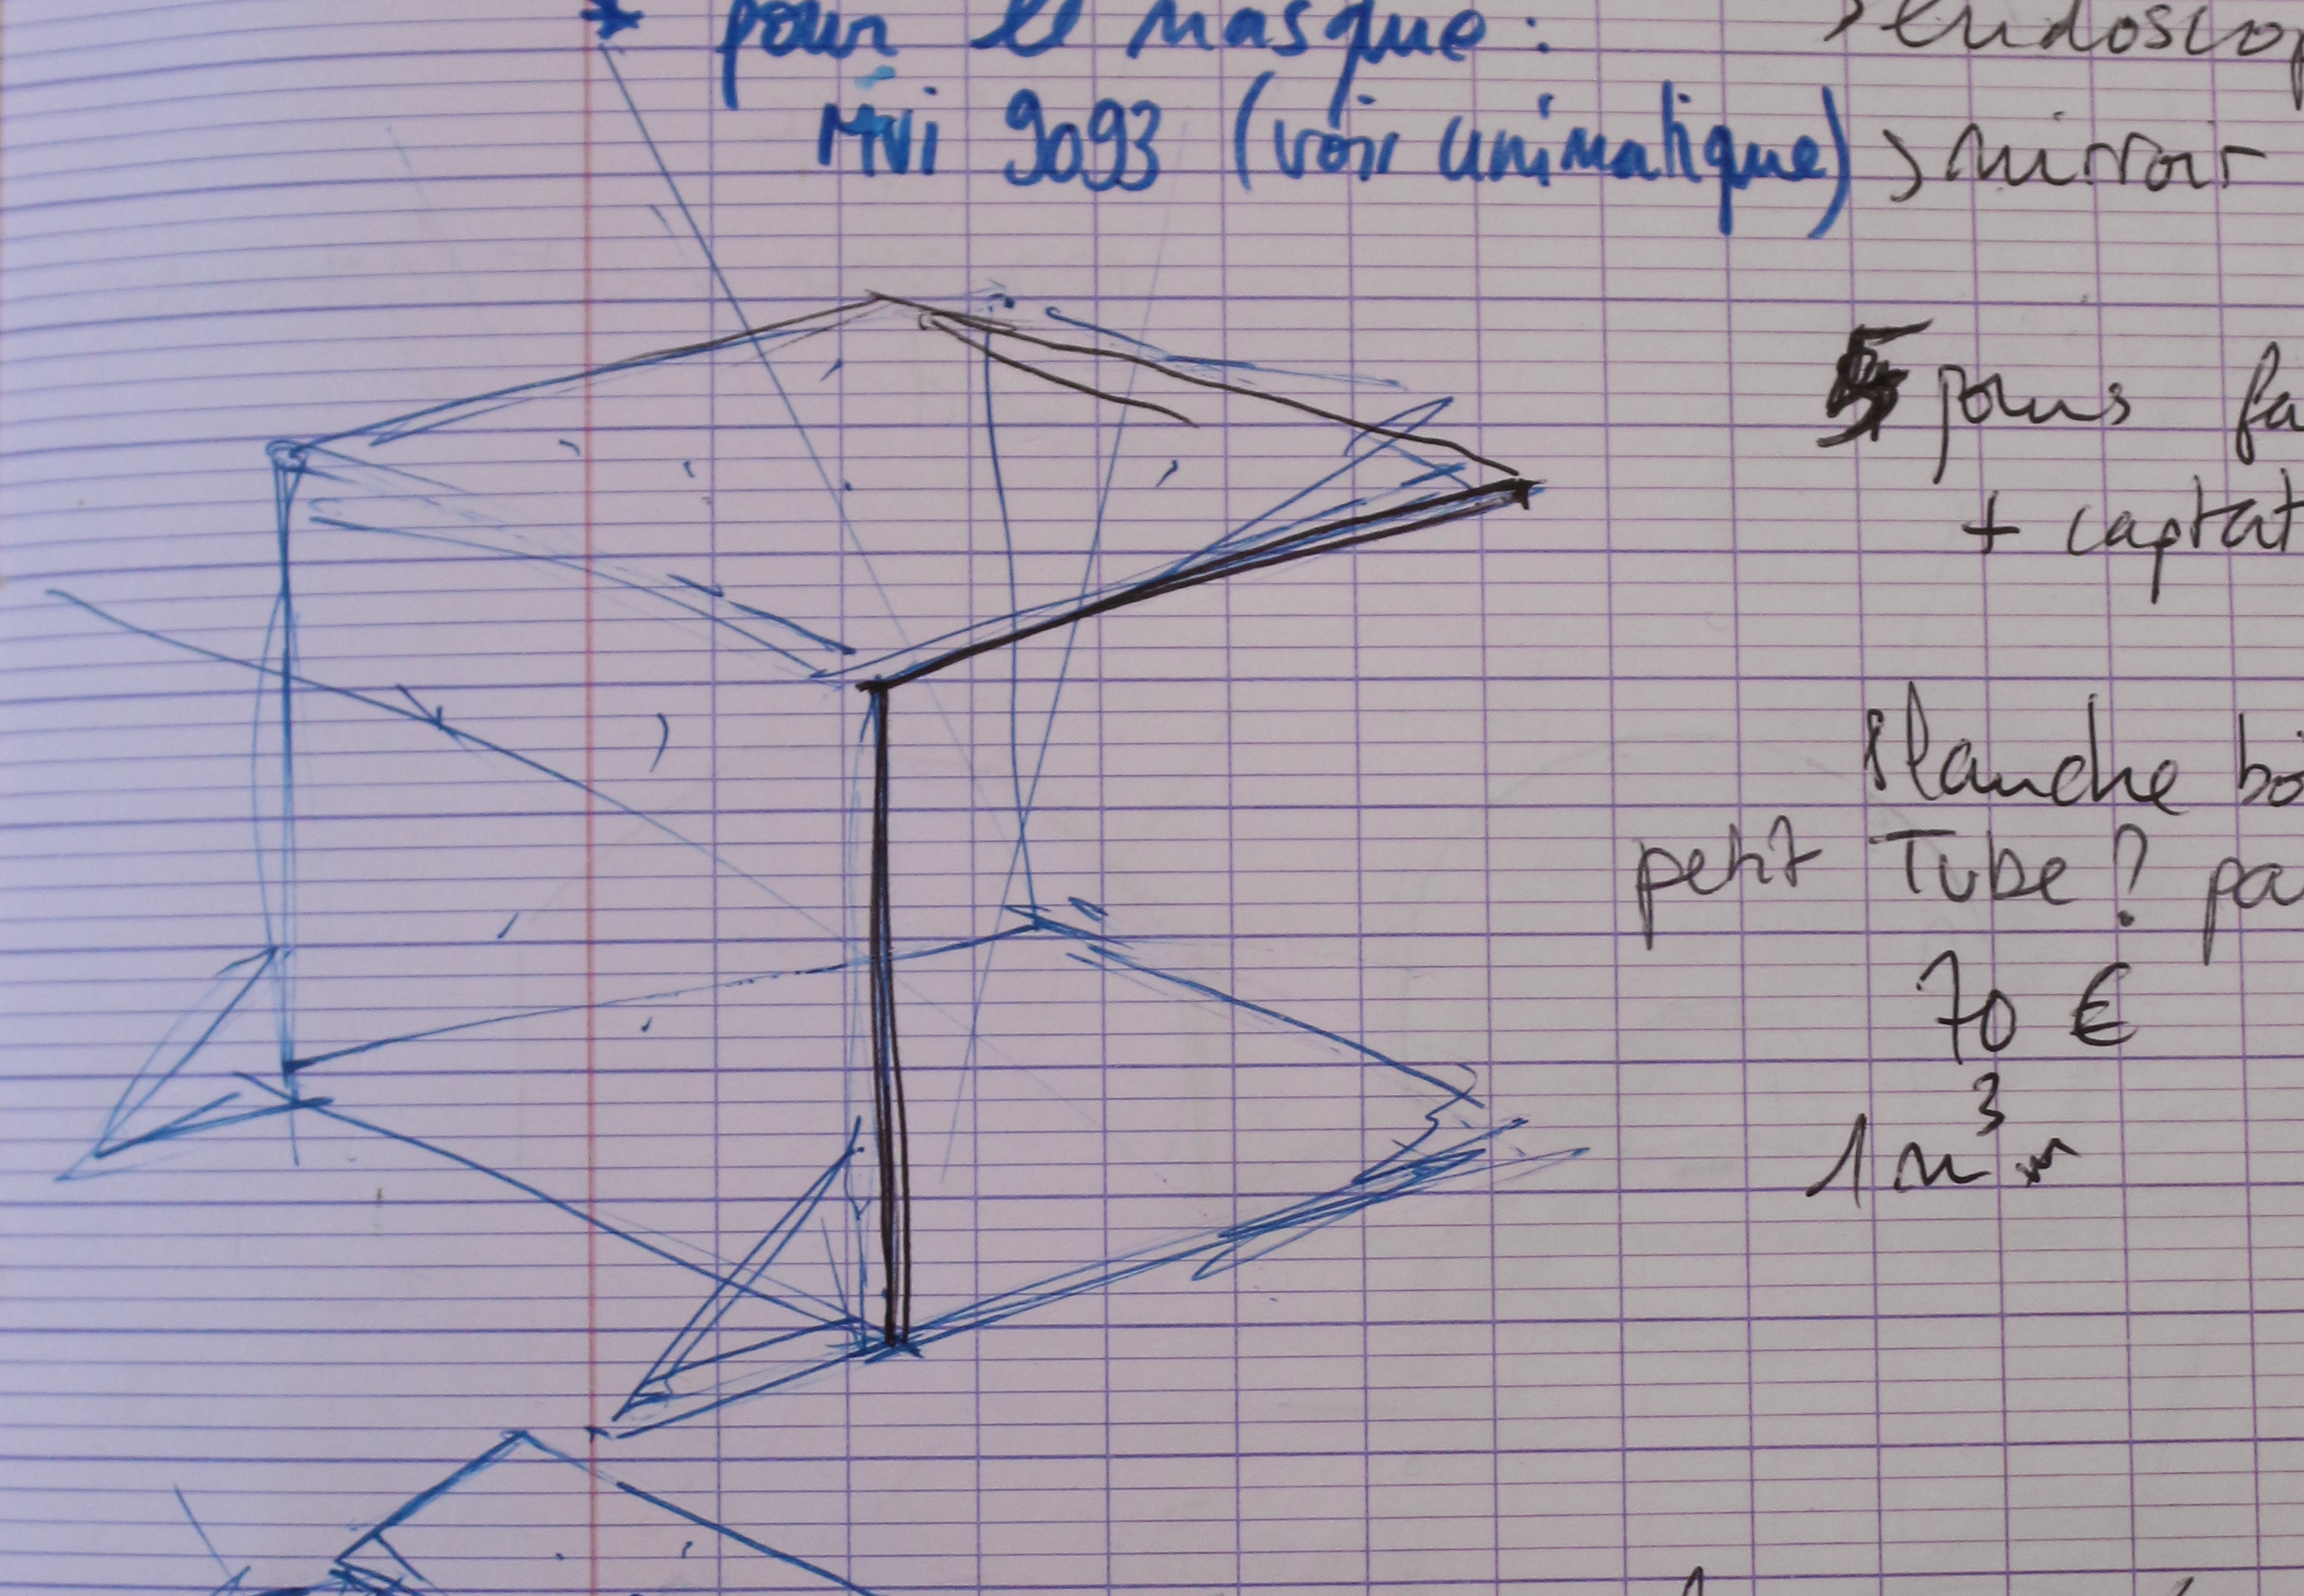 * pour le masque :
MVI 9093 (voir animatique)
> endoscop
> mirroir
5 jours fa
+ captat
Planche bo
petit Tube ? pa
70 €
1 m³